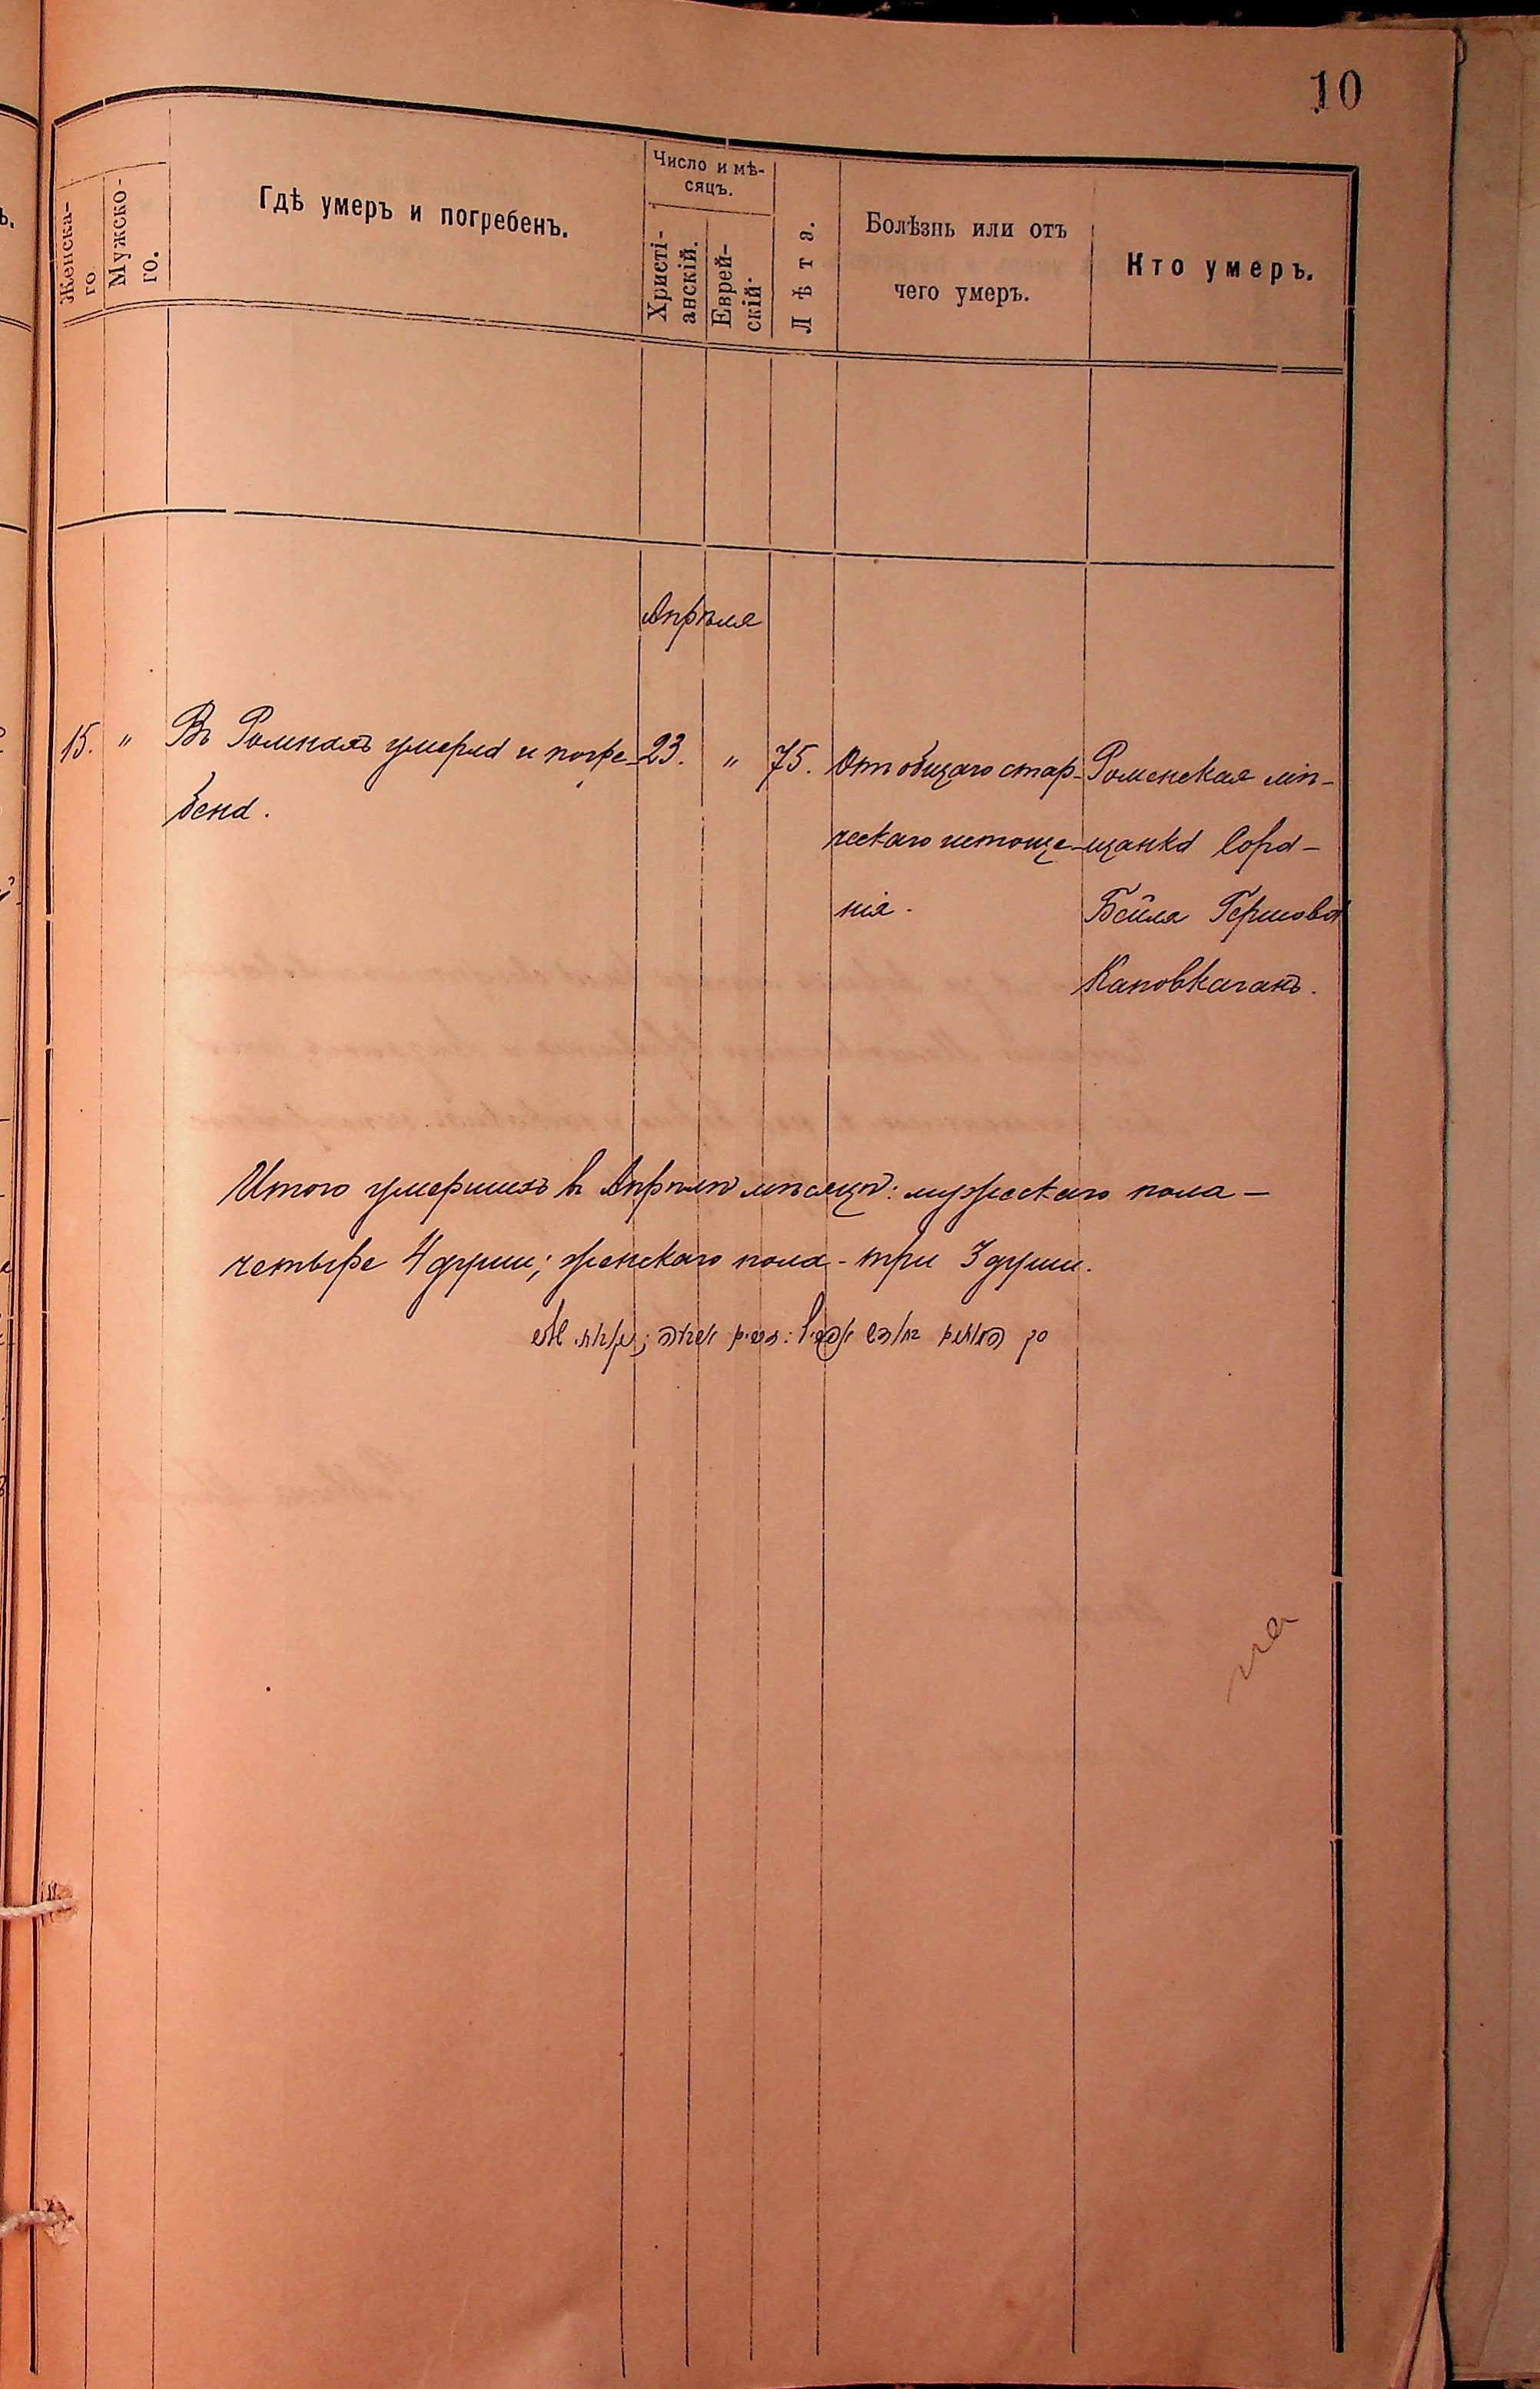 10
Женска-
го
Мужско-
го.
Гдѣ умеръ и погребенъ.
Число и мѣ-
сяцъ.
Христі-
анскій.
Еврей-
скій.
Лѣта.
Болѣзнь или отъ
чего умеръ.
Кто умеръ.
Апрѣля
15. " Въ Ромнахъ умерла и погре- 23. " 75. Отъ общаго стар- Роменская мѣ-
бена. ческаго истоще- щанка Сора-
нія. Бейля Гершова
Каповкаганъ.
Итого умершихъ въ Апрѣлѣ мѣсяцѣ: мужескаго пола –
четыре 4 души; женскаго пола - три 3 души.